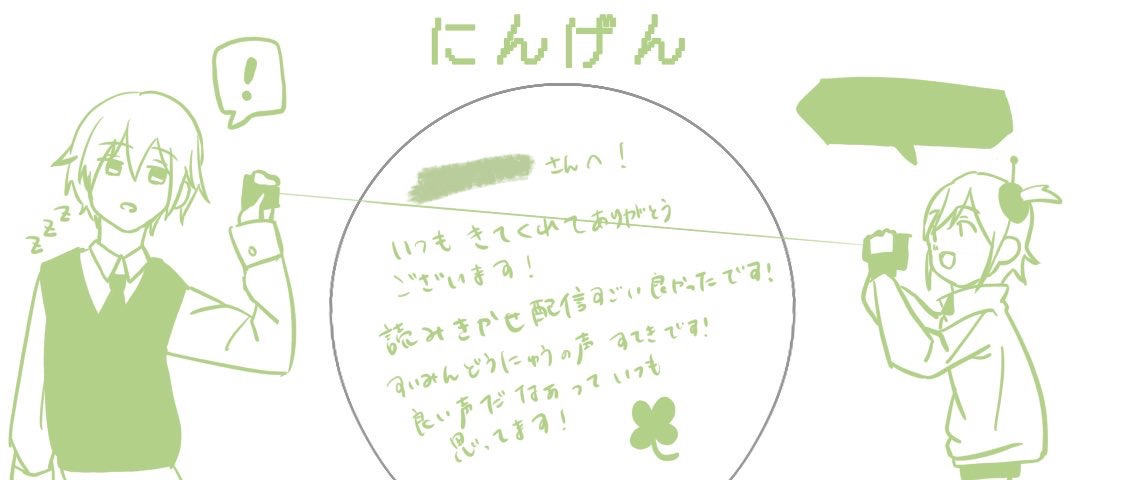 にんげん
!
さんへ!
いつもきてくれてありがとう
ございます!
読みきかせ配信すごい良かったです!
すいみんどうにゅうの声すてきです!
良い声だなぁっていつも
思ってます!
zzz